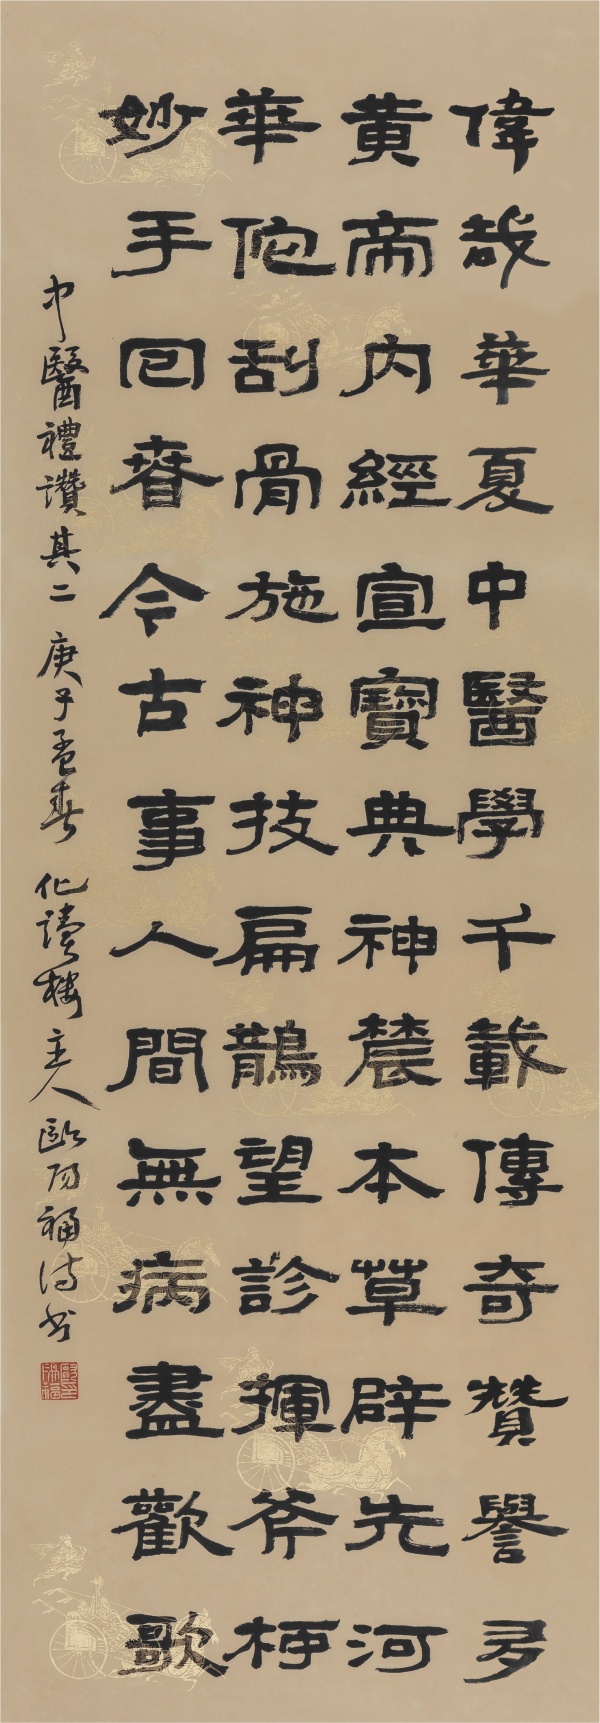 偉哉華夏中醫學千載傳奇贊譽多
黄帝内經宣寶典神農本草辟先河
華佗刮骨施神技扁鵲望診揮斧柯
妙手回春今古事人間無病盡歡歌
中醫禮讚其二 庚子孟春 化讀樓主人 歐陽福詩書